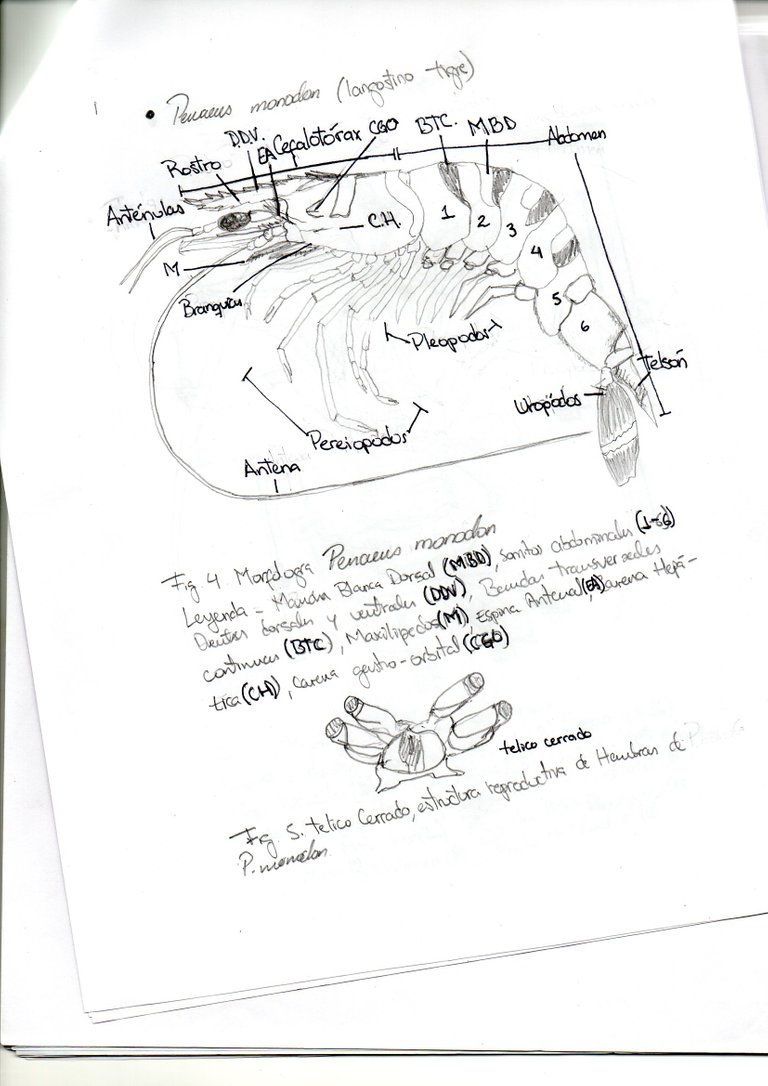 • Penaeus monodon (langostino tigre)
D.D.V.
EA
Cefalotórax
CGO
BTC.
MBD
Abdomen
Rostro
Anténulas
C.H.
1
2
3
4
5
6
M
Branquias
Pleopodos
Telsón
Uropódos
Pereiopódos
Antena
Fig 4. Morfología Penaeus monodon
Leyenda - Mancha Blanca Dorsal (MBD), somitos abdominales (1-6)
Dientes dorsales y ventrales (DDV), Bandas transversales
continuas (BTC), Maxilipedos (M), Espina Antenal (EA), Carena Hepá-
tica (CH), carena gastro-orbital (CGO)
telico cerrado
Fig. 5. telico Cerrado, estructura reproductiva de Hembras de
P. monodon